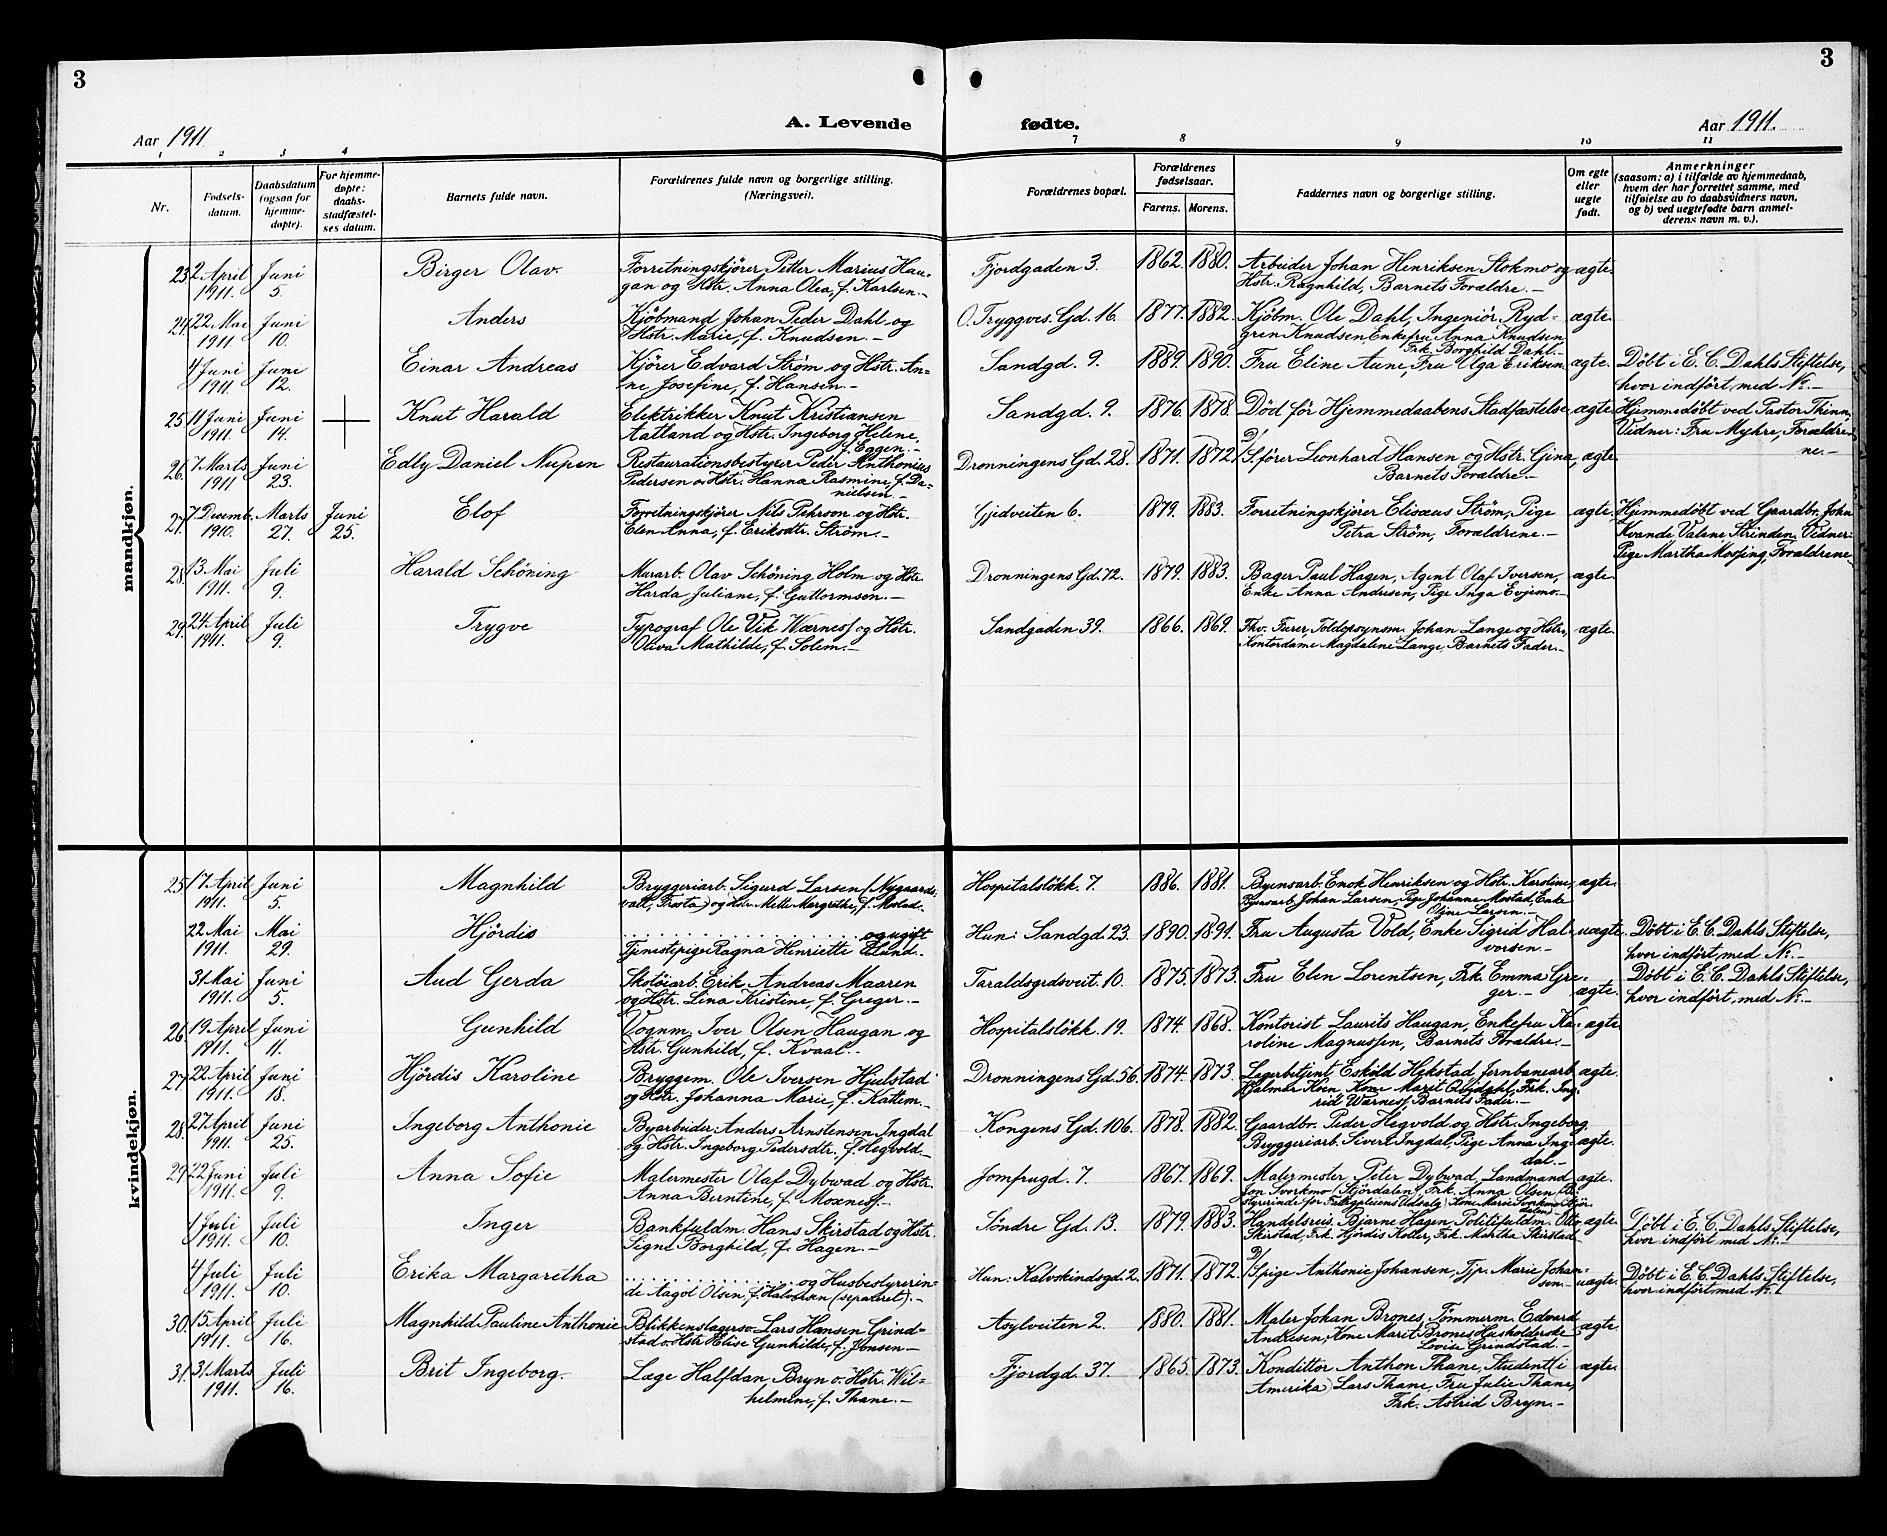 3
3
Aar 1911
A. Levende
fødte.
Aar 1911.
1 2 3 4 7 8 9 10 11
Nr.
Fødsels-
datum.
Daabsdatum
(ogsaa for
hjemme-
døpte).
For hjemme-
døpte:
daabs-
stadfæstel-
ses datum.
Barnets fulde navn.
Forældrenes fulde navn og borgerlige stilling.
(Næringsvei).
Forældrenes bopæl.
Forældrenes
fødselsaar.
Farens. Morens.
Faddernes navn og borgerlige stilling.
Om egte
eller
uegte
født.
Anmerkninger
(saasom: a) i tilfælde av hjemmedaab,
hvem der har forrettet samme, med
tilføielse av to daabsvidners navn,
og b) ved uegtefødte barn anmel-
derens navn m. v.).
mandkjøn.
23. 2 April Juni Birger Olav. Forretningskjører Petter Marius Hau- Fjordgaden 3. 1862. 1880. Arbeider Johan Henriksen Stokmo og ægte.
1911. 5. gan og Hstr. Anna Olea, f. Karlsen.- Hstr. Ragnhild, Barnets Forældre.-
24. 22 Mai Juni Anders Kjöbmand Johan Peder Dahl og O. Tryggves. Gd. 16. 1877. 1882. Kjöbm. Ole Dahl, Ingeniör Ryd- ægte.
1911 10. Hstr. Marie, f. Knudsen.- gren Knudsen Enkefru Anna Knudsen
Frk. Borghild Dahl.-
4 Juni Juni Einar Andreas Kjörer Edvard Ström og Hstr. An- Sandgd. 9. 1889. 1890. Fru Eline Aune, Fru Olga Eriksen ægte. Döbt i E. C. Dahls Stiftelse,
1911. 12. ne Josefine, f. Hansen.- hvor indfört, med No.-
25 11 Juni Juni Knut Harald Elektrikker Knut Kristiansen Sandgd. 9. 1876. 1878. Död för Hjemmedaabens Stadfæstelse ægte. Hjemmedöbt ved Pastor Thinn,
1911. 14. Aatland og Hstr. Ingeborg Helene, Vidner: Fru Myhre, Forældre-
f. Eggen.- ne.-
26. 7 Marts Juni Edly Daniel Nupen Restaurationsbestyrer Peder Anthonius Dronningens Gd. 28. 1871. 1872. D/S. förer Leonhard Hansen og Hstr. Gjina, ægte.
1911 23. Pedersen o. Hstr. Hanna Rasmine, f. Da- Barnets Forældre.-
nielsen.-
27. 7 Decemb. Marts Juni Elof Forretningskjører Nils Pehrson og Hstr. Gjidveiten 6. 1879. 1883. Forretningskjører Elisæus Ström, Pige ægte. Hjemmedöbt ved Gaardbr. John
1910. 27. 25. Elen Anna, f. Eriksdtr. Ström.- Petra Ström, Forældrene.- Kvande Valene Strinden, Vidner:
Pige Martha Mosfing, Forældrene-
28. 13. Mai Juli Harald Schöning Murarb. Olav Schöning Holm og Hstr. Dronningens Gd. 72. 1879. 1883. Bager Paul Hagen, Agent Olaf Iversen, ægte
1911. 9. Harda Juliane, f. Guttormsen.- Enke Anna Andresen, Pige Inga Evjemo.-
29. 24. April Juli Trygve Typograf Ole Vik Wærness og Hstr. Sandgaden 39. 1866. 1869. Fhv. Furer, Toldopsynsm. Johan Lange og Hstr., ægte.
1911. 9. Oliva Mathilde, f. Solem.- Kontordame Magdalene Lange, Barnets Fader.-
kvindekjøn.
25 17 April Juni Magnhild Bryggeriarb. Sigurd Larsen (Nygaards- Hospitalslökk. 7. 1886. 1881. Byensarb. Enok Henriksen og Hstr. Karoline, ægte.
1911. 5. vall, Frosta) og Hstr. Mette Margrethe, f. Mostad. Byensarb. Johan Larsen, Pige Johanne Mostad, Enke
Oline Larsen.-
22 Mai Mai Hjördis og ugift Hun: Sandgd. 23. 1890. 1891. Fru Augusta Vold, Enke Sigrid Hal- uægte. Döbt i E. C. Dahls Stiftelse,
1911. 29. Tjenestepige Ragna Henriette Eklund.- vorsen- hvor indfört, med No.-
31 Mai Juni Aud Gerda Skotöiarb. Erik Andreas Maaren Taraldsgrdsveit. 10. 1875. 1873. Fru Elen Lorentsen, Frk. Emma Gre- ægte. Döbt i E. C. Dahls Stiftelse,
1911. 5. og Hstr. Lina Kristine, f. Greger.- ger.- hvor indfört, med No.-
26. 19 April Juni Gunhild Vognm. Iver Olsen Haugan og Hospitalslökk. 19. 1874. 1868. Kontorist Laurits Haugan, Enkefru Ka- ægte
1911. 11. Hstr. Gunhild, f. Kvaal.- roline Magnussen, Barnets Forældre.-
27 22 April Juni Hjördis Karoline Bryggem. Ole Iversen Hjulstad Dronningens Gd. 56. 1874. 1873. Lagerbetjent Eskild Hekstad, Jernbanearb. ægte.
1911. 18. og Hstr. Johanna Marie, f. Kattem.- Hjalmar Koen, Kone Marit Qvidahl, Frk. Ing-
rid Wærness, Barnets Fader.-
28. 27 April Juni Ingeborg Anthonie Byarbeider Anders Arnstensen Ingdal Kongens Gd. 106. 1878. 1882. Gaardbr. Peder Hegvold og Hstr. Ingeborg
1911. 25. og Hstr. Ingeborg Pedersdtr., f. Hegvold- Bryggeriarb. Sivert Ingdal, Pige Anna Ing- ægte.
dal.-
29 22 Juni Juli Anna Sofie Malermester Olaf Dybwad og Hstr. Jomfrugd. 7. 1867. 1869. Malermester Peter Dybwad, Landmand ægte.
1911. 9. Anna Berntine, f. Moxness.- Jon Svorkmo (Stjördalen), Frk. Anna Olsen (Be-
styrerinde for
1 Juli Juli Inger Bankfuldm. Hans Skirstad og Hstr. Söndre Gd. 13. 1879. 1883. Handelsreis. Bjarne Hagen, Politifuldm. Otto ægte. Döbt i E. C. Dahls Stiftelse,
1911. 10. Signe Borghild, f. Hagen.- Skirstad, Frk. Hjördis Kotter, Frk. Martha Skirstad- hvor indfört med No.-
4 Juli Juli Erika Margaretha og Husbestyrerin- Hun: Kalvskindsgd. 2. 1871. 1872. D/Spige Anthonie Johansen, Tjp. Marie Johan- uægte. Döbt i E. C. Dahls Stiftelse,
1911. 10. de Aagot Olsen, f. Halvorsen (separeret).- sen- hvor indfört med No.
30. 15 April Juli Magnhild Pauline Anthonie Blikkenslagersv. Lars Hansen Grind- Asylveiten 2. 1880. 1881. Maler Johan Brones, Tömmerm. Edvard ægte.
1911. 16. stad o. Hstr. Elise Gunhilde, f. Jonsen- Andresen, Kone Marit Brones, Husholderske
Lovise Grindstad.-
31. 31 Marts Juli Brit Ingeborg. Læge Halfdan Bryn o. Hstr. Wil- Fjordgd. 37. 1865. 1873. Kondittor Anthon Thane, Student (i ægte.
1911. 16. helmine, f. Thane.- Amerika) Lars Thane, Fru Julie Thane,
Frk. Astrid Bryn.-